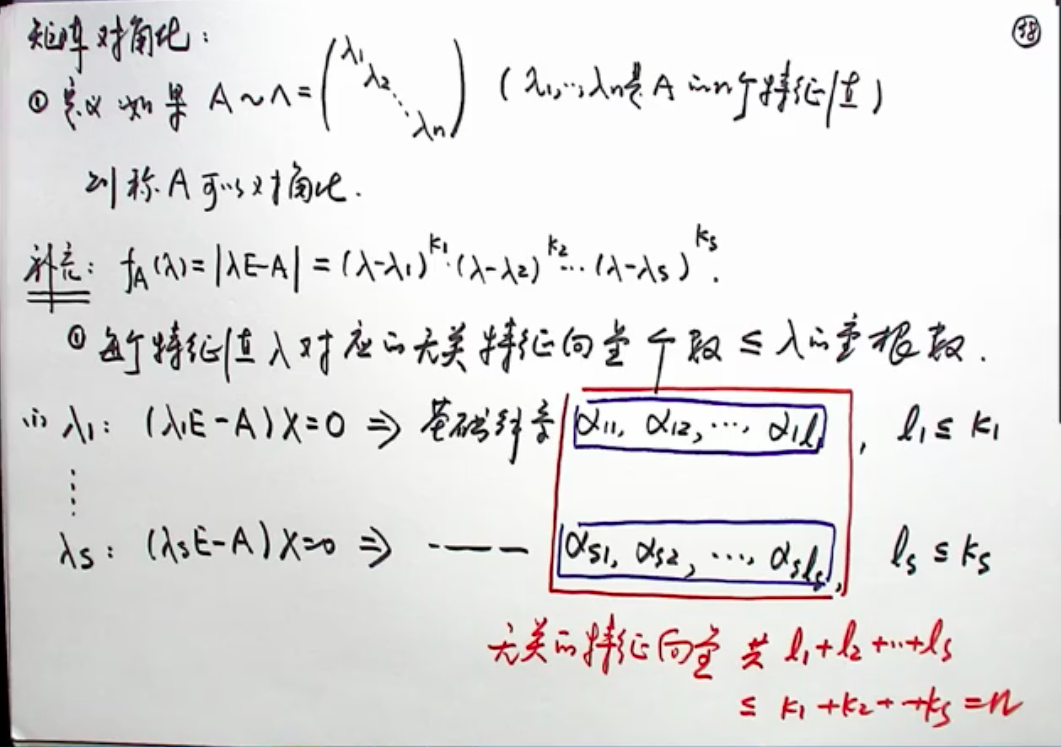 38
矩阵对角化：
① 定义 如果 A∼Λ=(λ₁ λ₂ ⋱ λn) (λ₁,…,λn是A的n个特征值)
则称A可以对角化.
补充: f_A(λ)=|λE-A|=(λ-λ₁)^k₁·(λ-λ₂)^k₂…(λ-λs)^ks.
① 每个特征值λ对应的无关特征向量个数≤λ的重根数.
(i) λ₁: (λ₁E-A)X=0 ⇒ 基础解系 α₁₁, α₁₂, …, α₁l₁, l₁≤k₁
⋮
λs: (λsE-A)X=0 ⇒ ——— αs₁, αs₂, …, αsls, ls≤ks
无关的特征向量 共 l₁+l₂+…+ls
≤ k₁+k₂+…+ks=n